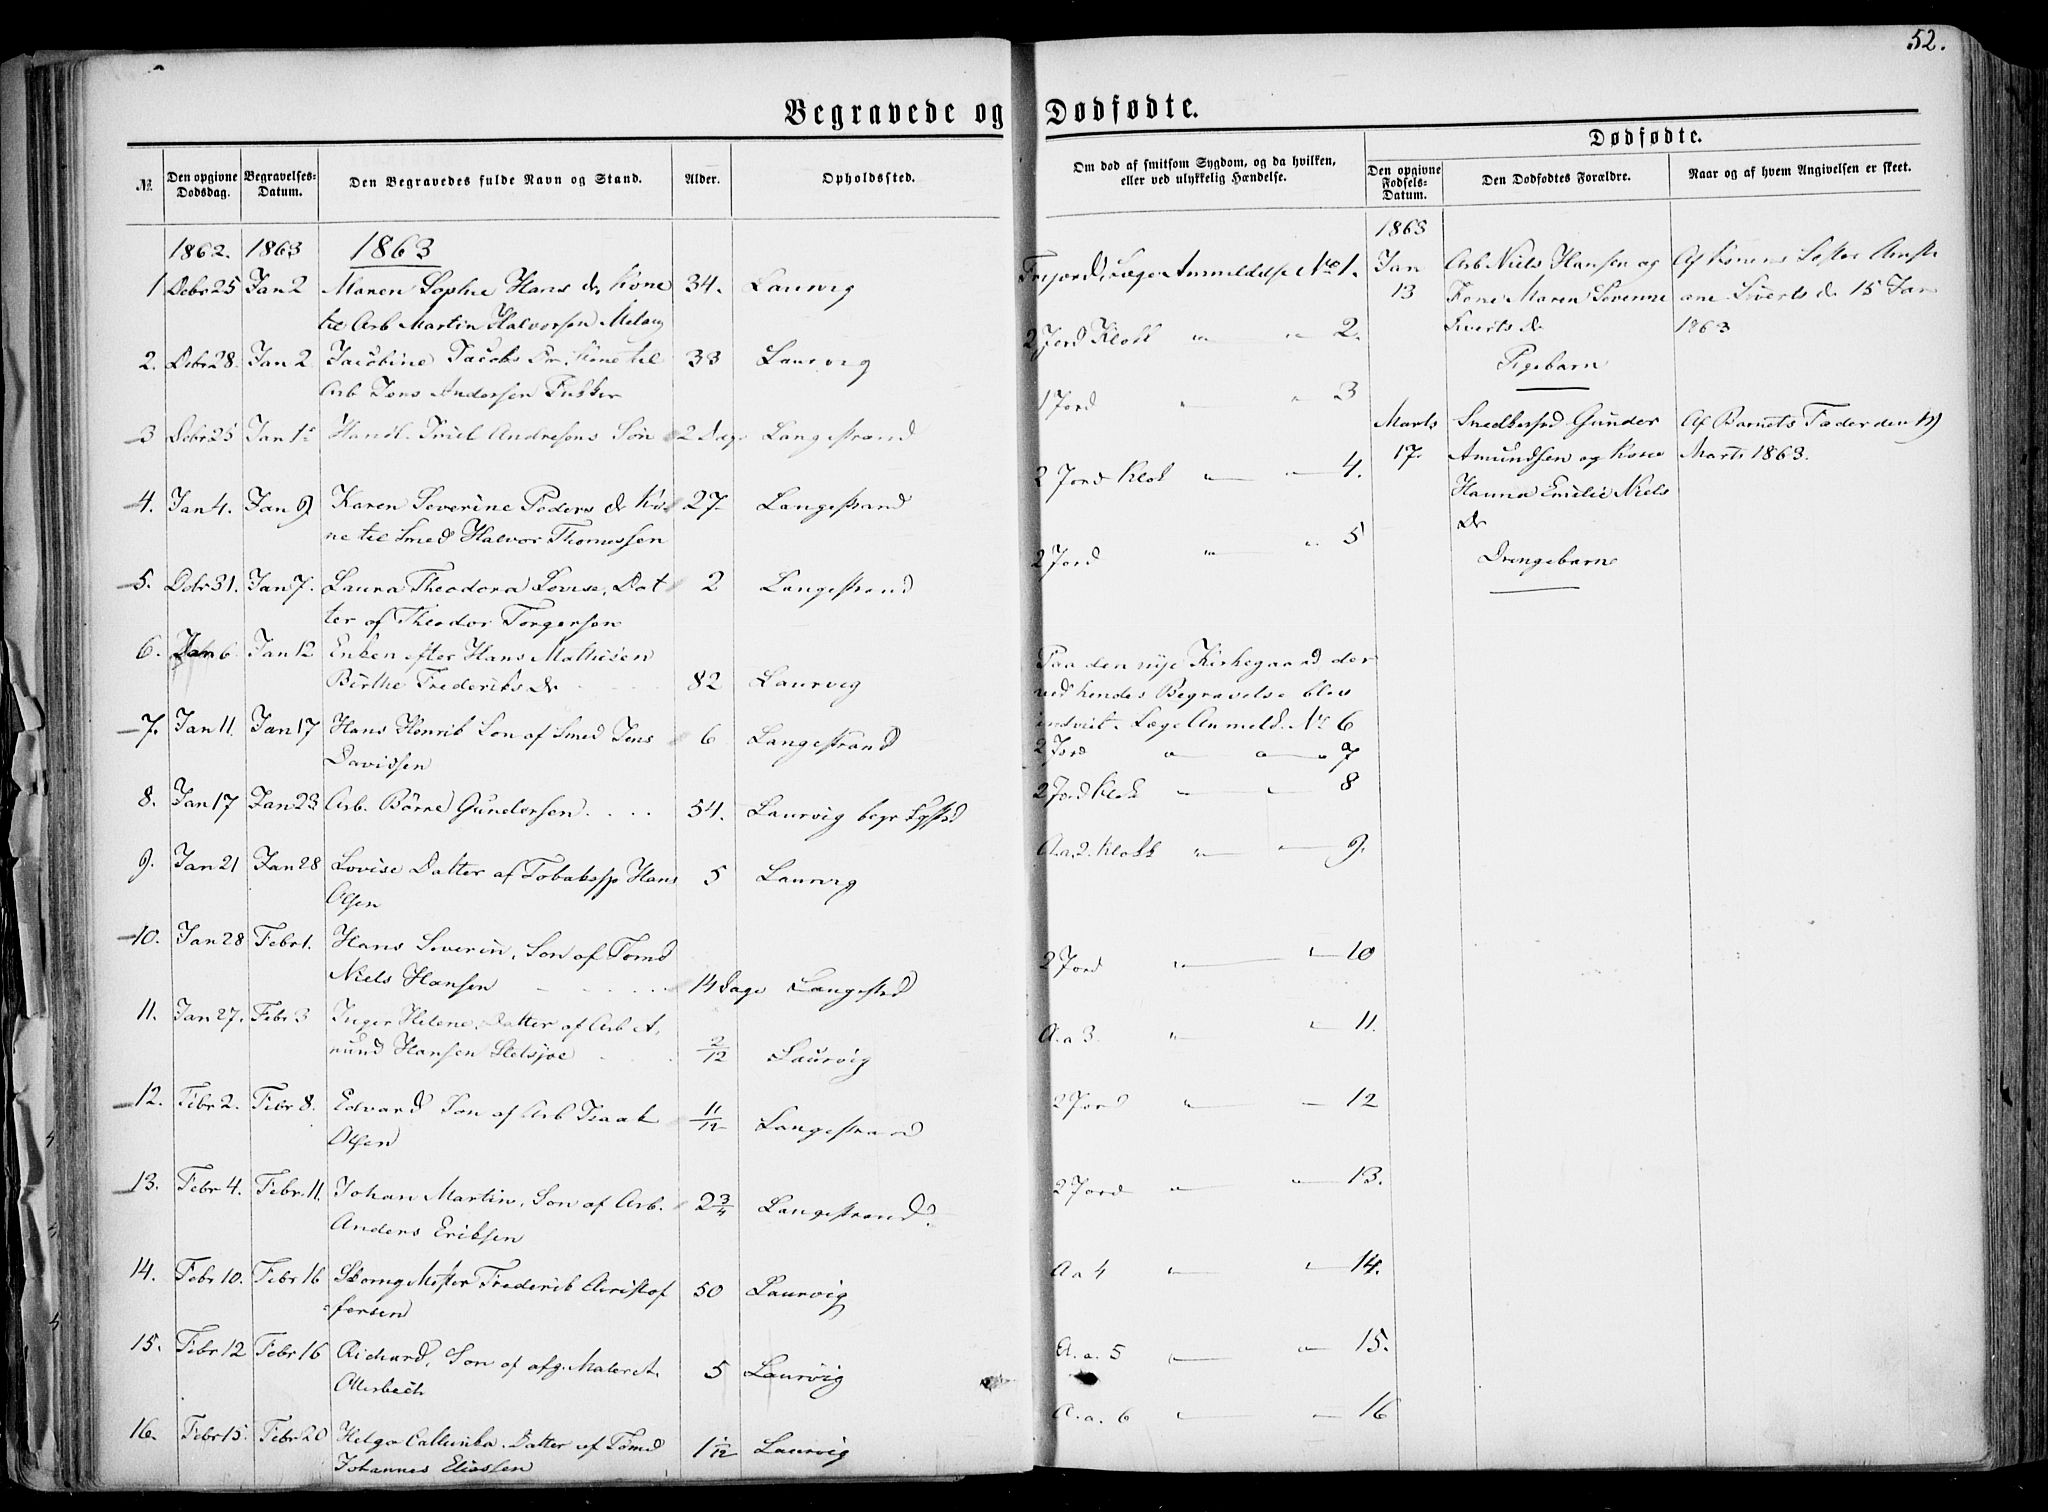 52.
Begravede og Dødfødte.
№
Den opgivne Dødsdag.
Begravelses-Datum.
Den Begravedes fulde Navn og Stand.
Alder.
Opholdssted.
Om død af smitsom Sygdom, og da hvilken,
eller ved ulykkelig Hændelse.
Dødfødte.
Den opgivne Fødsels-Datum.
Den Dødfødtes Forældre.
Naar og af hvem Angivelsen er skeet.
1862. 1863 1863
1 Debr 25 Jan 2 Maren Sophie Hans Dr Kone 34. Laurvig
til Arb Martin Halvorsen
2. Debr 28. Jan 2 Jacobine Jacobs Dr. Kone til 33 Laurvig
Arb Jens Andersen
3 Debr 25 Jan Handl. Emil Andresens Søn 2 Dage Langestrand
4. Jan 4. Jan 9. Karen Severine Peders Dr Ko 27 Langestrand
ne til Smed Halvor Thomassen
5. Debr 31. Jan 7. Laura Theodora Lovise, Dat 2 Langestrand
ter af Theodor Torgersen
6. Jan 6 Jan 12 Enken efter Hans Mathisen
Birthe Frederiks Dr 82 Laurvig
7. Jan 11. Jan 17 Hans Henrik Søn af Smed Jens 6 Langestrand
Davidsen
8. Jan 17 Jan 23 Arb. Børre Gundersen .... 54. Laurvig begr
9. Jan 21 Jan 28 Lovise Datter af Tobaksp Hans 5 Laurvig
Olsen
10. Jan 28 Febr 1. Hans Severin, Søn af Tømd
Niels Hansen 14 Dage Langestrd
11. Jan 27. Febr 3 Inger Helene Datter af Arb A,
mund Hansen 2/12 Laurvig
12. Febr 2. Febr 8. Edvard Søn af Arb Isaak 11/12 Langestrand
Olsen
13. Febr 4. Febr. 11. Johan Martin, Søn af Arb. 2 3/4 Langestrand.
Anders Eriksen
14. Febr 10. Febr 16 Mester Frederik Christof 50 Laurvig
fersen
15. Febr 12 Febr 16 Richard, Søn af afg. Maler A. 5 Laurvig
Otterbech
16. Febr 15. Febr 20 Helga Datter af Tømd 1 1/12 Laurvig
Johannes Eliassen
Frijord, Læge Anmeldelse No 1.
2 Jord Klokk " " 2.
1 Jord " " 3
2 Jord Klok " " 4.
2 Jord " " 5
Paa den nye Kirkegaard der
ved hendes Begravelse blev
indviet. Læge Anmeld. No 6
2 Jord " " " 7
2 Jord Klok " " 8
A.a. 2. Klokk " " 9.
2 Jord " " 10
A. a 3. " " 11.
2 Jord " 12
2 Jord " " 13.
A a 4 " " 14.
A. a. 5 " " 15.
A. a. 6 " " 16
1863
Jan Arb Niels Hansen og Af Konens Søster
13 Kone Maren Severine ane Siverts Dr 15 Jan
Siverts Dr 1863
Pigebarn
Marts Gunder Af Barnets Fader den 19
17. Amundsen og Kone Marts 1863.
Hanna Emilie Niels
Dr
Drengebarn